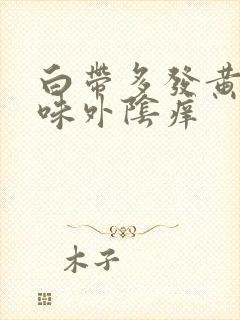 白帶多發黃
味外陰痒
木子